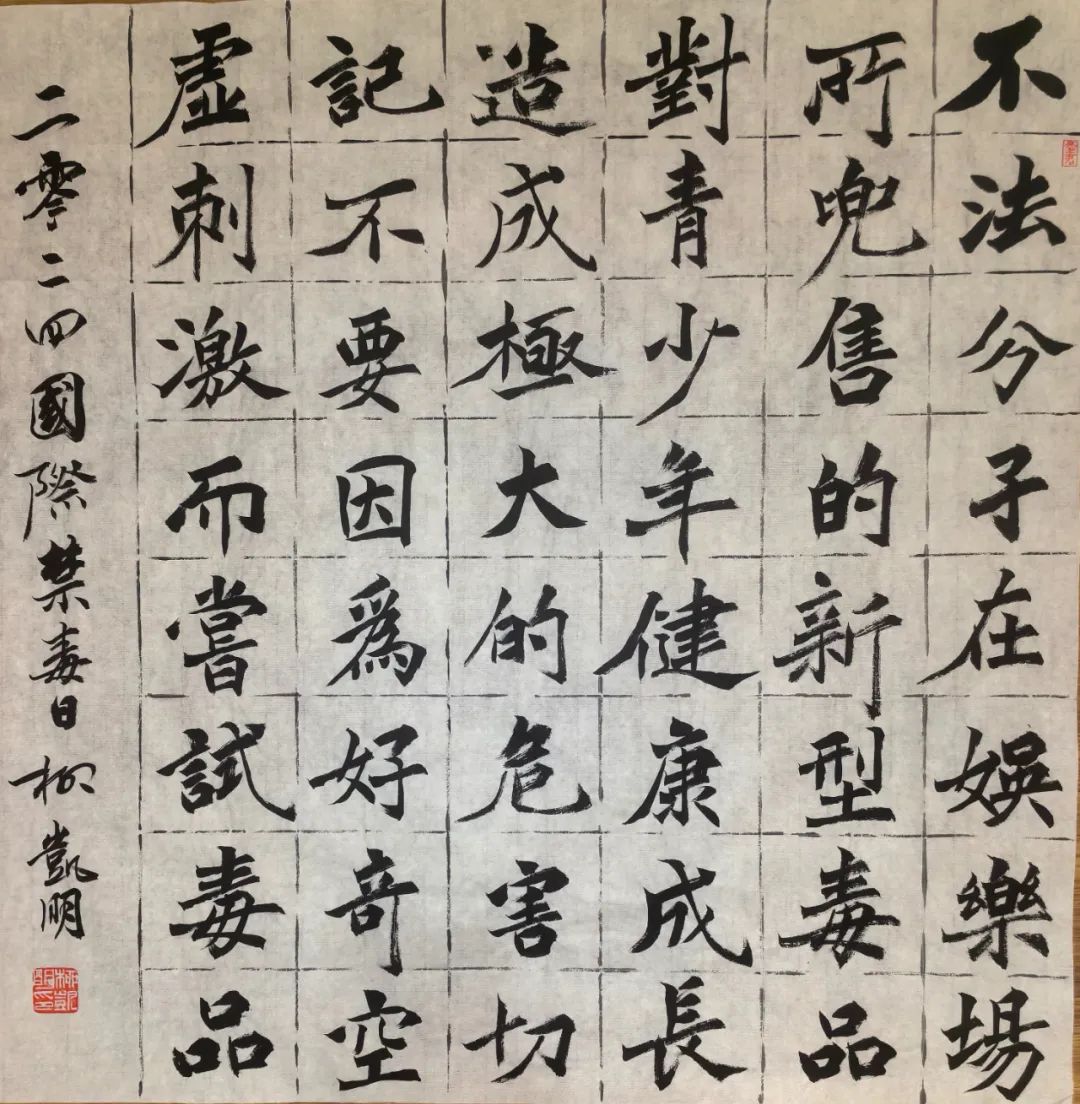 不法分子在娛樂場
所兜售的新型毒品
對青少年健康成長
造成極大的危害切
記不要因爲好奇空
虛刺激而嘗試毒品
二零二四國際禁毒日柳凱明